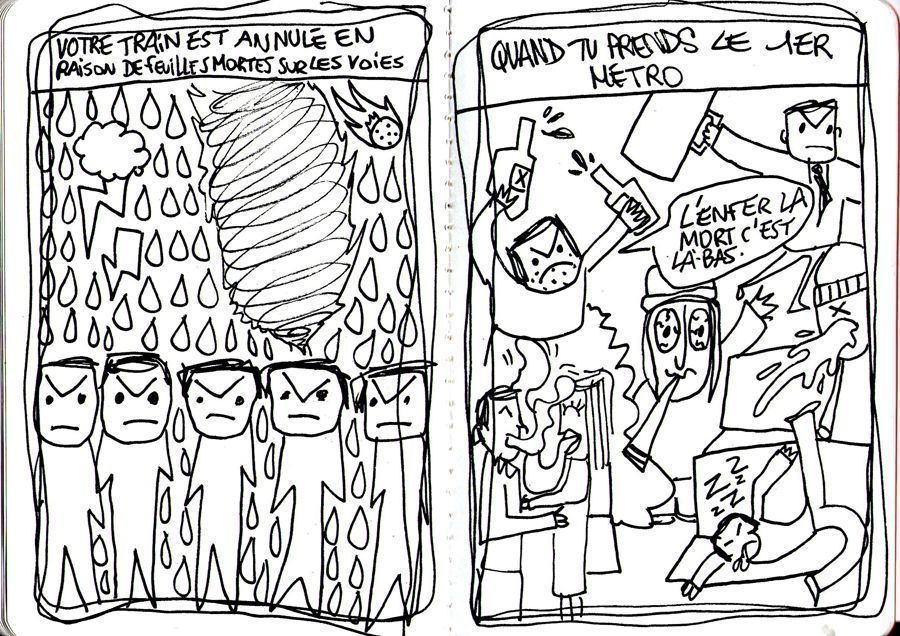 VOTRE TRAIN EST ANNULÉ EN
RAISON DE FEUILLES MORTES SUR LES VOIES
QUAND TU PRENDS LE 1ER
MÉTRO
L'ENFER LA
MORT C'EST
LÀ-BAS.
X
X
Z
Z Z
Z Z
Z Z